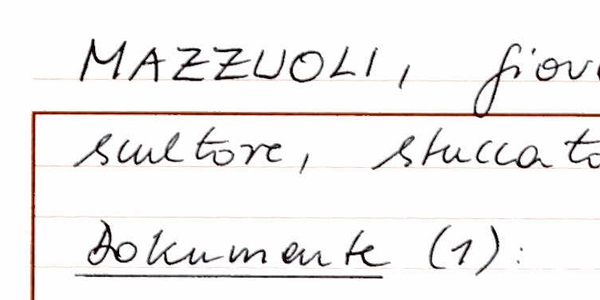 MAZZUOLI, giov
scultore, stuccato
Dokumente (1):